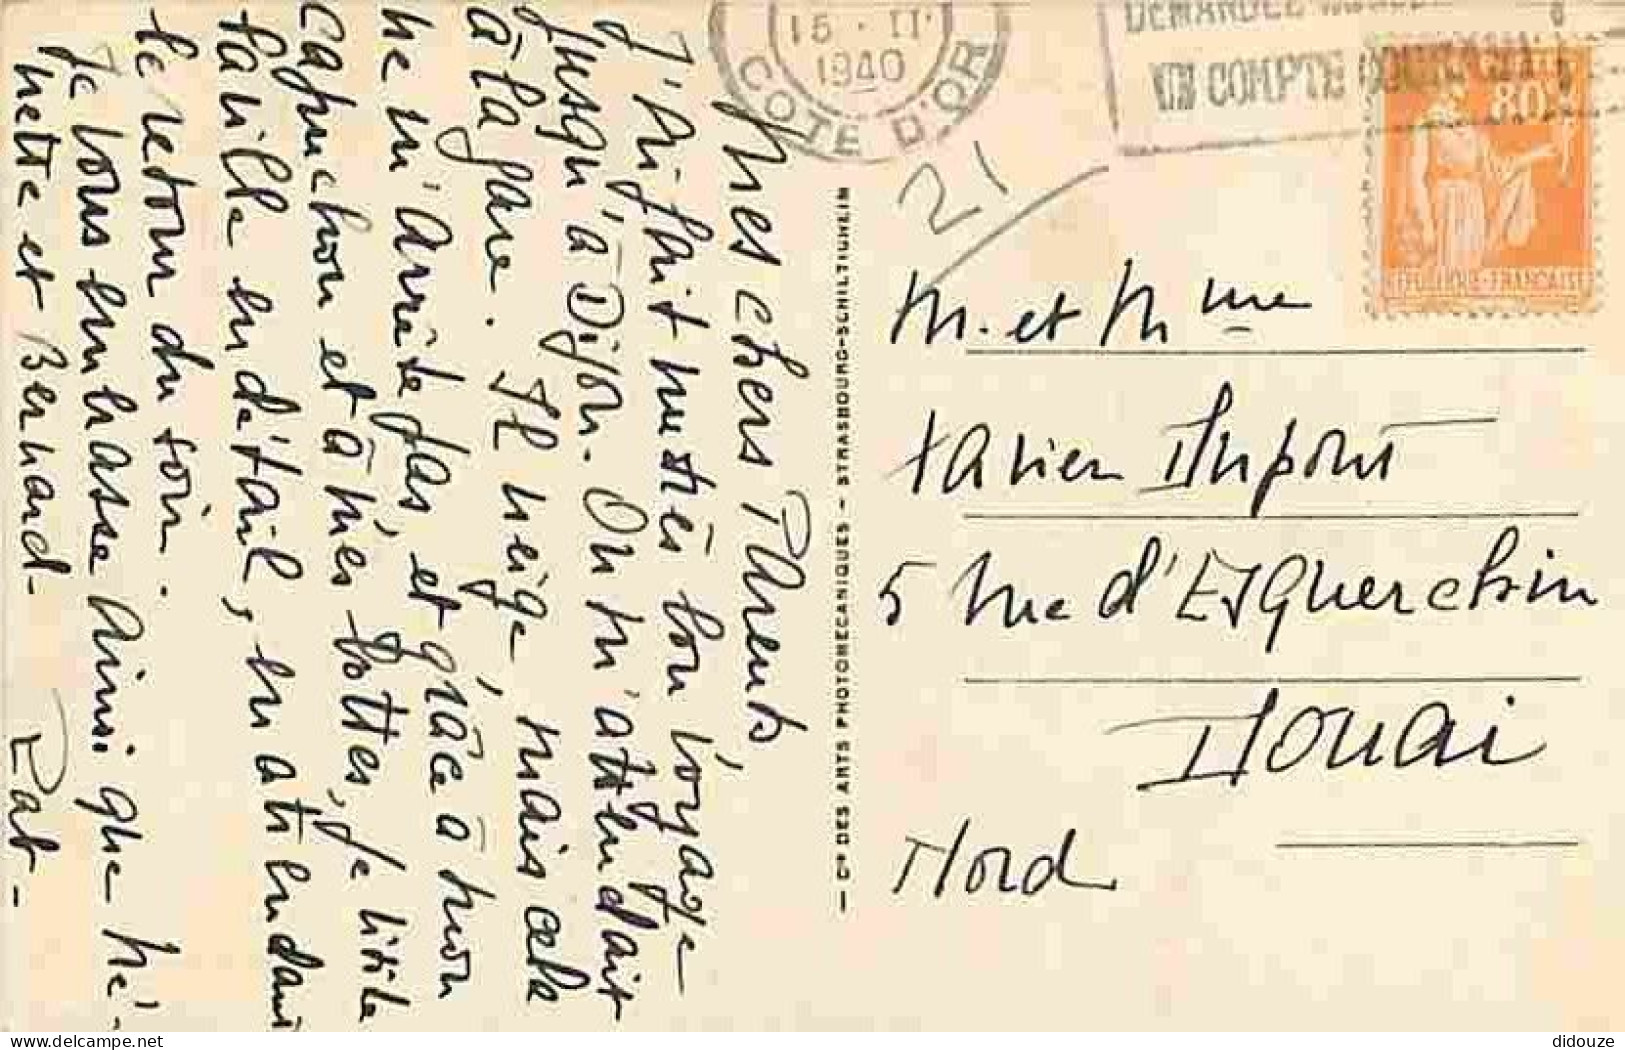 Mes chers Parents,
J'ai fait un très bon voyage
jusqu'à Dijon. On m'attendait
à la gare. Il neige, mais cela
ne m'arrête pas, et grâce à mon
capuchon et à mes bottes, je visite
la ville en détail, en attendant
le retour du soir.
Je vous embrasse ainsi que Né-
nette et Bernard-
Pat-
15 · II·
1940
COTE D'OR
DEMANDEZ
UN COMPTE COURANT
80c
REPUBLIQUE-FRANCAISE
21
— Cie DES ARTS PHOTOMECANIQUES — STRASBOURG-SCHILTIGHEIM
M. et Mme
Xavier Dupont
5 rue d'Esquerchin
Douai
Nord
delcampe.net
didouze